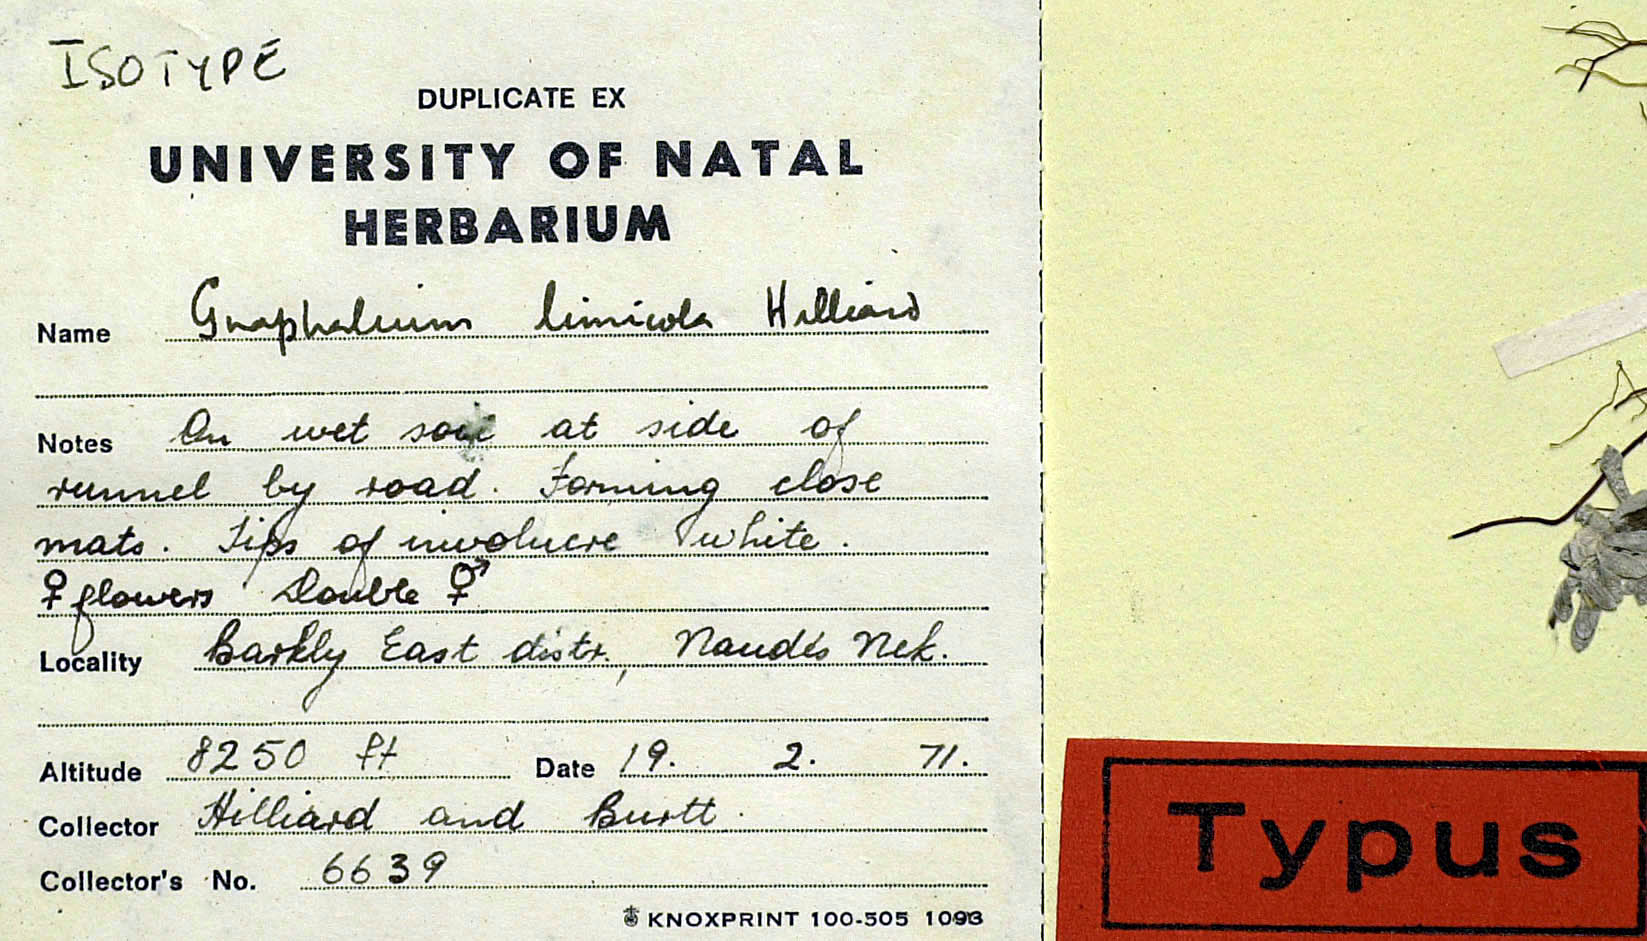 ISOTYPE
DUPLICATE EX
UNIVERSITY OF NATAL
HERBARIUM
Name Gnaphalium limicola Hilliard
Notes On wet soil at side of
runnel by road. Forming close
mats. Tips of involucre white.
♀ flowers Double ⚥
Locality Barkly East distr., Naudés Nek.
Altitude 8250 ft Date 19. 2. 71.
Collector Hilliard and Burtt.
Collector's No. 6639
KNOXPRINT 100-505 1093
Typus